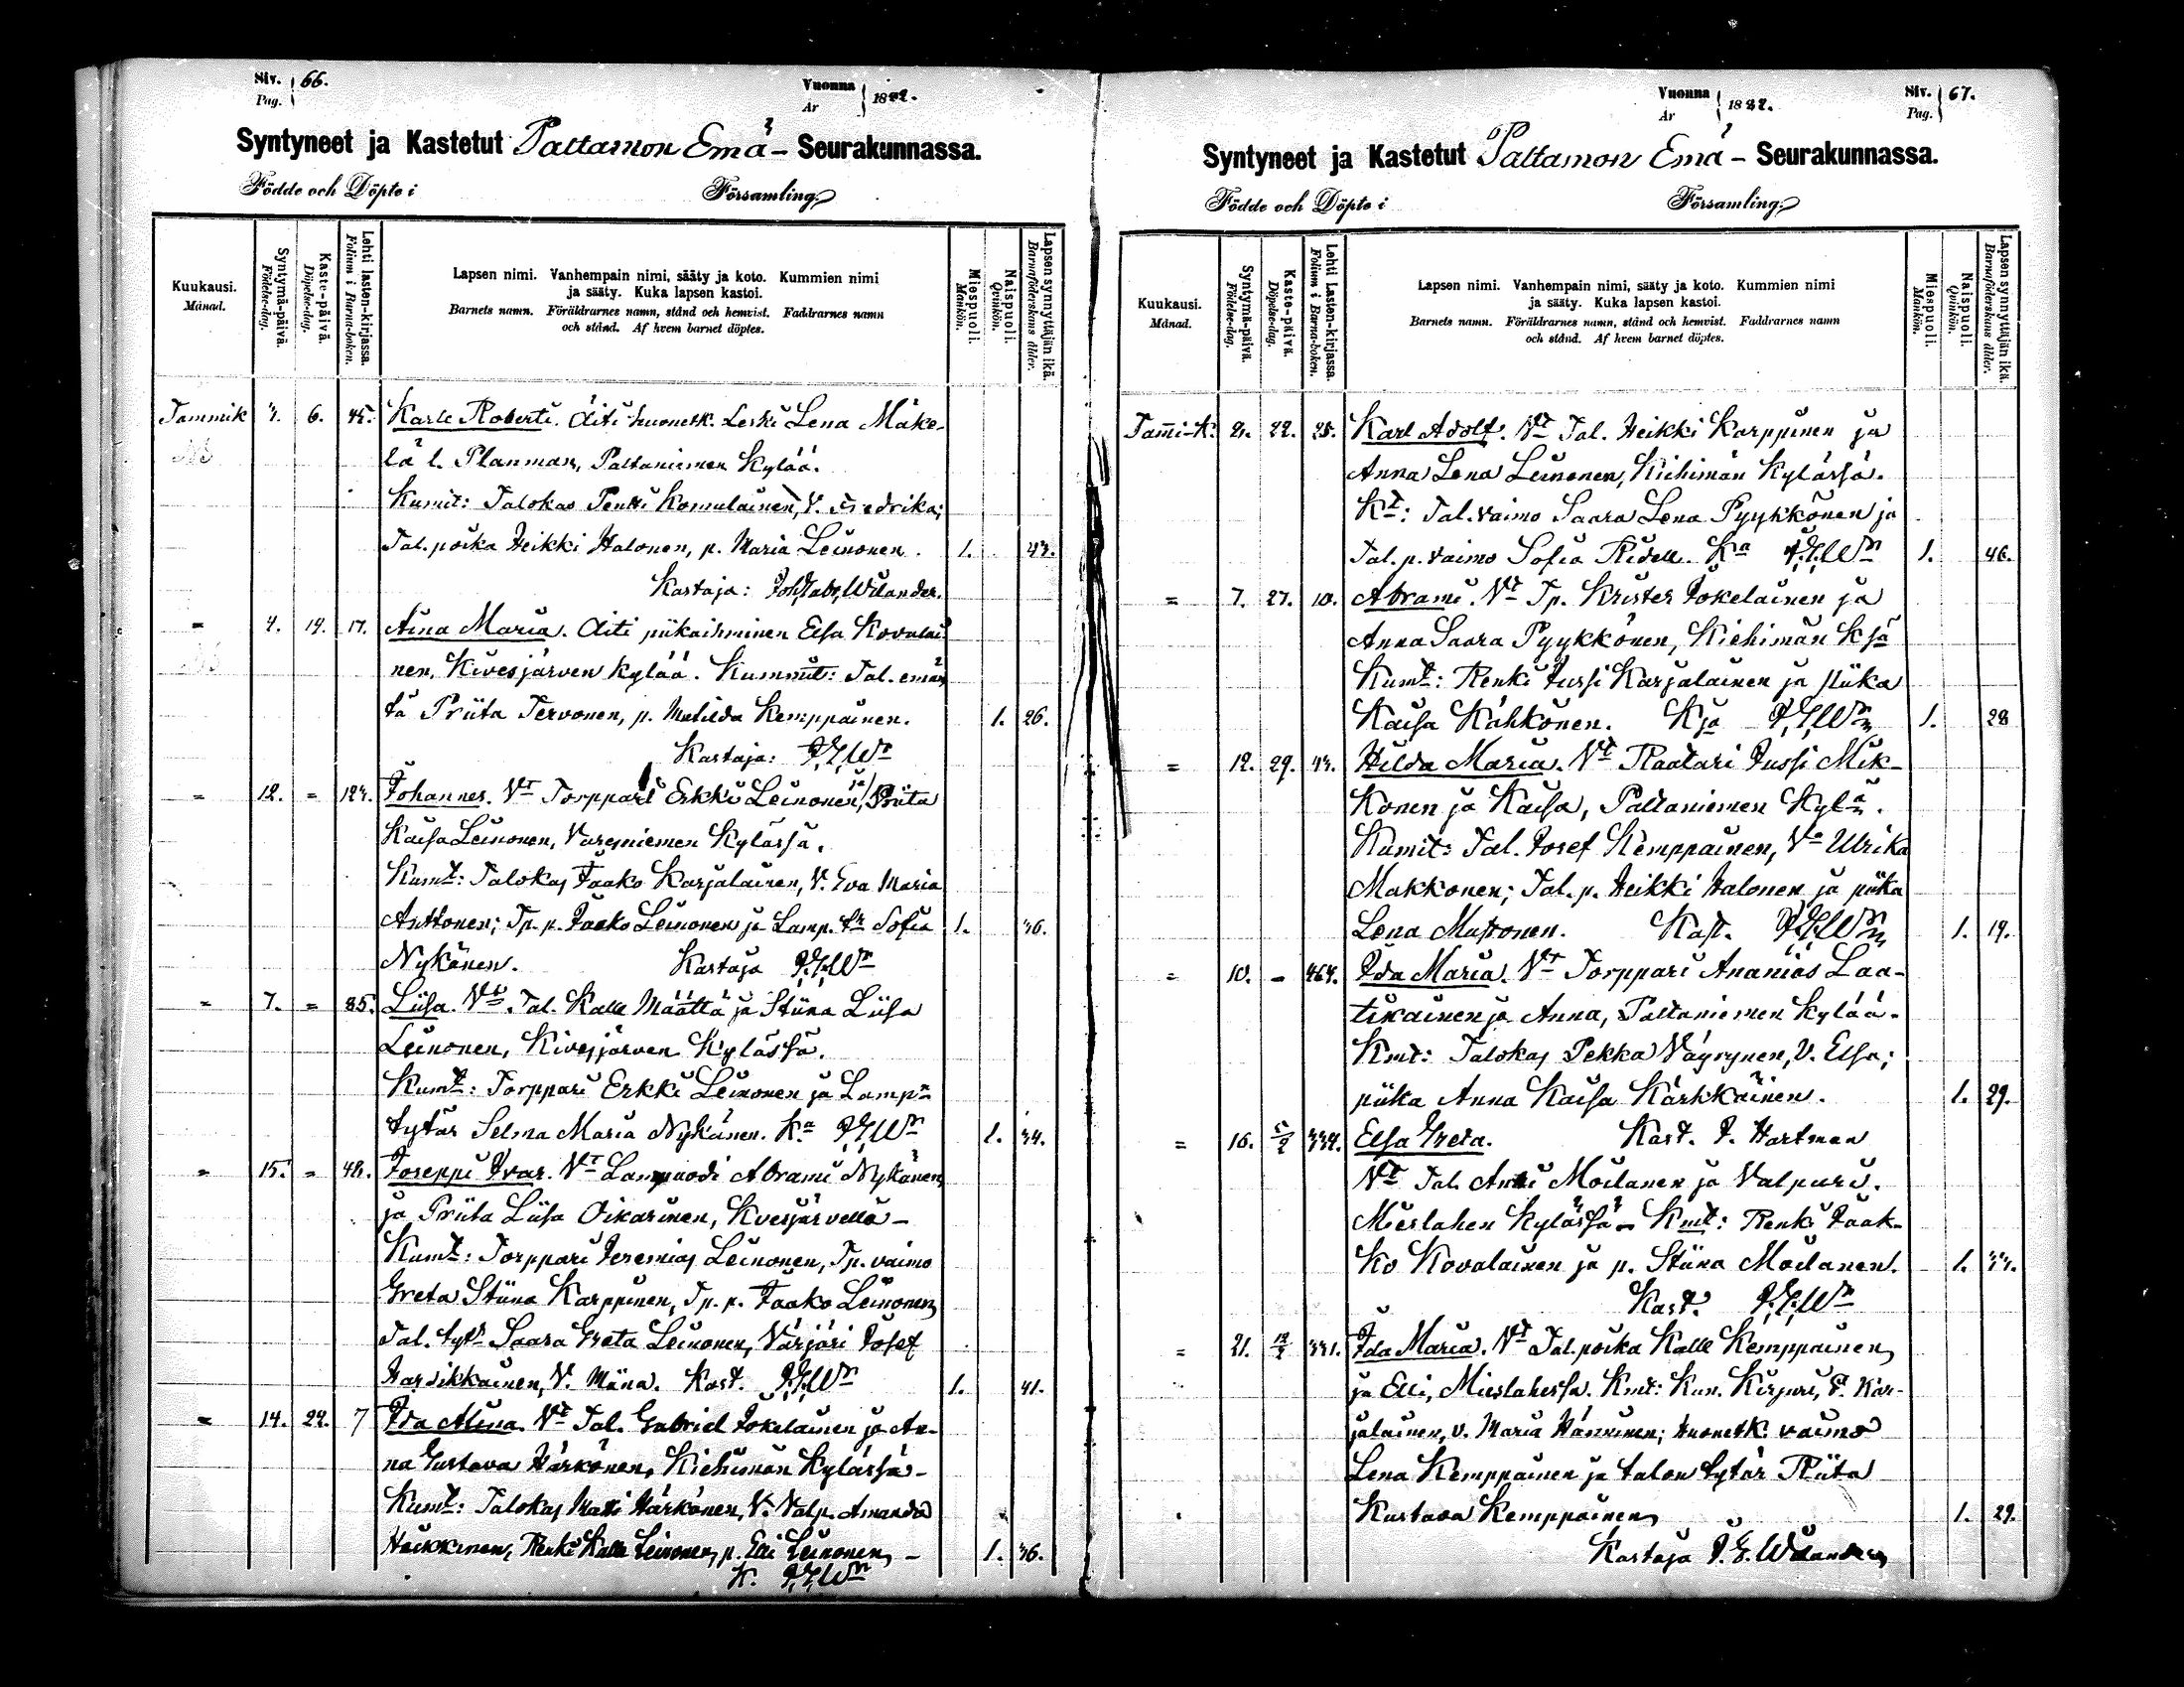 Siv. 66.
Pag.
Vuonna 1882.
År
Syntyneet ja Kastetut Paltamon Emä- Seurakunnassa.
Födde och Döpte i Församling.
Kuukausi. Månad.
Syntymä-päivä. Födelse-dag.
Kaste-päivä. Döpelse-dag.
Lehti lasten-kirjassa. Folium i Barna-boken.
Lapsen nimi. Vanhempain nimi, sääty ja koto. Kummien nimi
ja sääty. Kuka lapsen kastoi.
Barnets namn. Föräldrarnes namn, stånd och hemvist. Faddrarnes namn
och stånd. Af hvem barnet döptes.
Miespuoli. Mankön.
Naispuoli. Qvinkön.
Lapsen synnyttäjän ikä. Barnaföderskans ålder.
Tammik 6. 45. Karle Roberti. Äiti huonetk. Leski Lena Mäke-
lä l. Planman, Paltaniemen Kylää.
Kumit: Talokas Pentti Komulainen, V. Fredrika;
Tal. poika Heikki Halonen, p. Maria Leinonen. 1. 43.
Kastaja: Joh. Gabr. Wilander.
" 4. 14. 17. Aina Maria. Äiti piikaihminen Elsa Kovalai-
nen, Kivesjärven kylää. Kummit: Tal. emän-
tä Priita Tervonen, p. Matilda Kemppainen. 1. 26.
Kastaja: J.G.Wr
" 12. " 123. Johannes. Vt Torppari Erkki Leinonen, ja Priita
Kaisa Leinonen, Varesniemen Kylässä.
Kumt: Talokas Jaako Karjalainen, V. Eva Maria
Anttonen; Tp. p. Jaako Leinonen ja Lamp. tr Sofia 1. 36.
Nykänen. Kastaja J.G.Wr
" 7. " 85. Liisa. Vt Tal. Kalle Määttä ja Stiina Liisa
Leinonen, Kivesjärven Kylässä.
Kumt: Torppari Erkki Leinonen ja Lamp-
tytär Selma Maria Nykänen. Ka J.G.Wr 1. 34.
" 15. " 48. Joseppi Ivar. Vt Lampuodi Abrami Nykänen
ja Priita Liisa Oikarinen, Kvesjärvellä-
Kumt: Torppari Jeremias Leinonen, Tp. vaimo
Greta Stiina Karppinen, Tp. p. Jaako Leinonen,
Tal. tytr Saara Greta Leinonen, Värjäri Josef
Hardikkainen, V. Miina. Kast. J.G.Wr 1. 41.
" 14. 22. 7 Ida Alina. Vt Tal. Gabriel Jokelainen ja An-
na Gustava Härkönen, Kiehimän Kylässä-
Kumt: Talokas Matti Härkönen, V. Valp. Amanda
Heikkinen, Renki Kalle Leinonen, p. Elli Leinonen, - 1. 36.
K. J.G.Wr
Vuonna 1882.
År
Siv. 67.
Pag.
Syntyneet ja Kastetut Paltamon Emä- Seurakunnassa.
Födde och Döpte i Församling.
Kuukausi. Månad.
Syntymä-päivä. Födelse-dag.
Kaste-päivä. Döpelse-dag.
Lehti Lasten-kirjassa. Folium i Barna-boken.
Lapsen nimi. Vanhempain nimi, sääty ja koto. Kummien nimi
ja sääty. Kuka lapsen kastoi.
Barnets namn. Föräldrarnes namn, stånd och hemvist. Faddrarnes namn
och stånd. Af hvem barnet döptes.
Miespuoli. Mankön.
Naispuoli. Qvinkön.
Lapsen synnyttäjän ikä. Barnaföderskans ålder.
Tammi-K. 22. 25. Karl Adolf. Vt Tal. Heikki Karppinen ja
Anna Lena Leinonen, Kiehimän Kylässä.
Kt: Tal. vaimo Saara Lena Pyykkönen ja
Tal. p. vaimo Sofia Ridell. Ka J.G.Wr 1. 46.
" 7. 27. 10. Abrami. Vt Tp. Krister Jokelainen ja
Anna Saara Pyykkönen, Kiehimän Ksä
Kumt: Renki Jussi Karjalainen ja piika
Kaisa Kähkönen. Kja J.G.Wr 1. 28
" 12. 29. 43. Hilda Maria. Vt Raatari Jussi Mik-
konen ja Kaisa, Paltaniemen Kylä.
Kumit: Tal. Josef Kemppainen, Vo Ulrika
Makkonen; Tal. p. Heikki Halonen ja piika
Lena Mustonen. Kast. J.G.Wr 1. 19.
" 10. " 464. Ida Maria. Vt Torppari Ananias Laa-
tikainen ja Anna, Paltaniemen kylää.
Kmt: Talokas Pekka Väyrynen, V. Elsa;
piika Anna Kaisa Kärkkäinen. 1. 29.
" 16. 5/2 334. Elsa Greta. Kast. J. Hartman
Vt Tal. Antti Moilanen ja Valpuri.
Mieslahen kylässä - Kmt: Renki Jaak-
ko Kovalainen ja p. Stiina Moilanen. 1. 33.
Kast. J.G.Wr
" 21. 12/2 331. Ida Maria. Vt Tal. poika Kalle Kemppainen,
ja Elli, Mieslahessa. Kmt: Kun. Kirjuri, P. Kar-
jalainen, v. Maria Hänninen; Huonetk. vaimo
Lena Kemppainen ja talon tytär Riita
Kustava Kemppainen, 1. 29.
Kastaja J. G. Wilander,